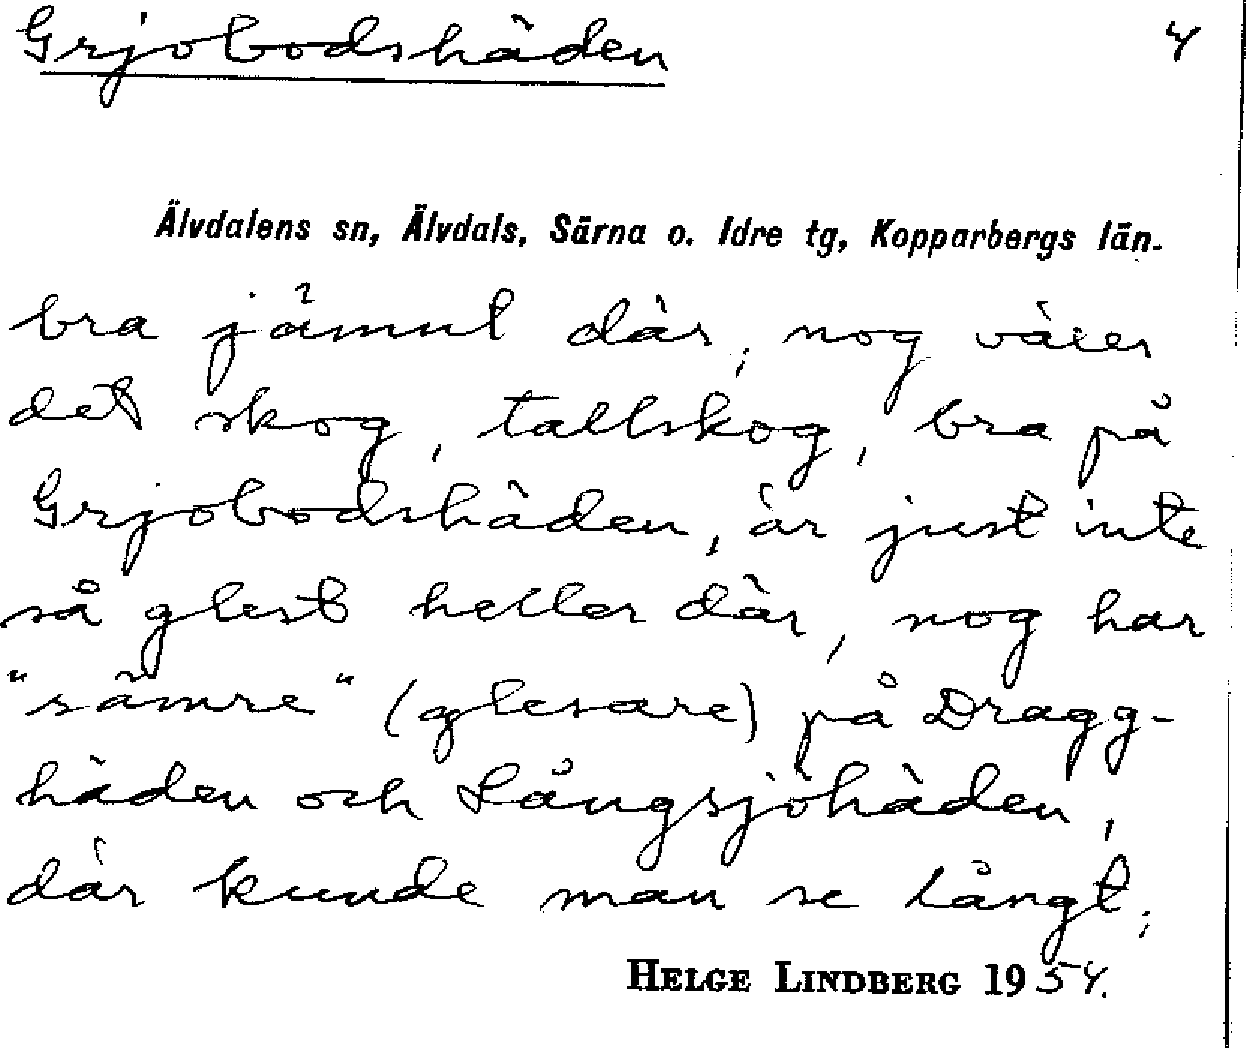 Grjobodshäden 4
Älvdalens sn, Älvdals, Särna o. Idre tg, Kopparbergs län.
bra jämnt där; nog växer
det skog, tallskog, bra på
Grjobodshäden, är just inte
så glest heller där, nog har
"sämre" (glesare) på Dragg-
häden och Långsjöhäden,
där kunde man se långt;
HELGE LINDBERG 1954.